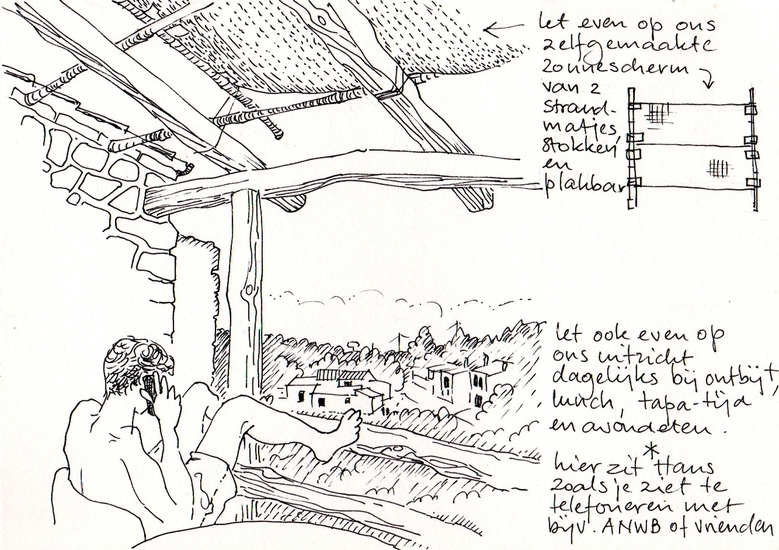 let even op ons
zelfgemaakte
zonnescherm
van 2
strand-
matjes,
stokken
en
plakband
let ook even op
ons uitzicht
dagelijks bij ontbijt,
lunch, tapa-tijd
en avondeten.
*
hier zit Hans
zoals je ziet te
telefoneren met
bijv. ANWB of vrienden